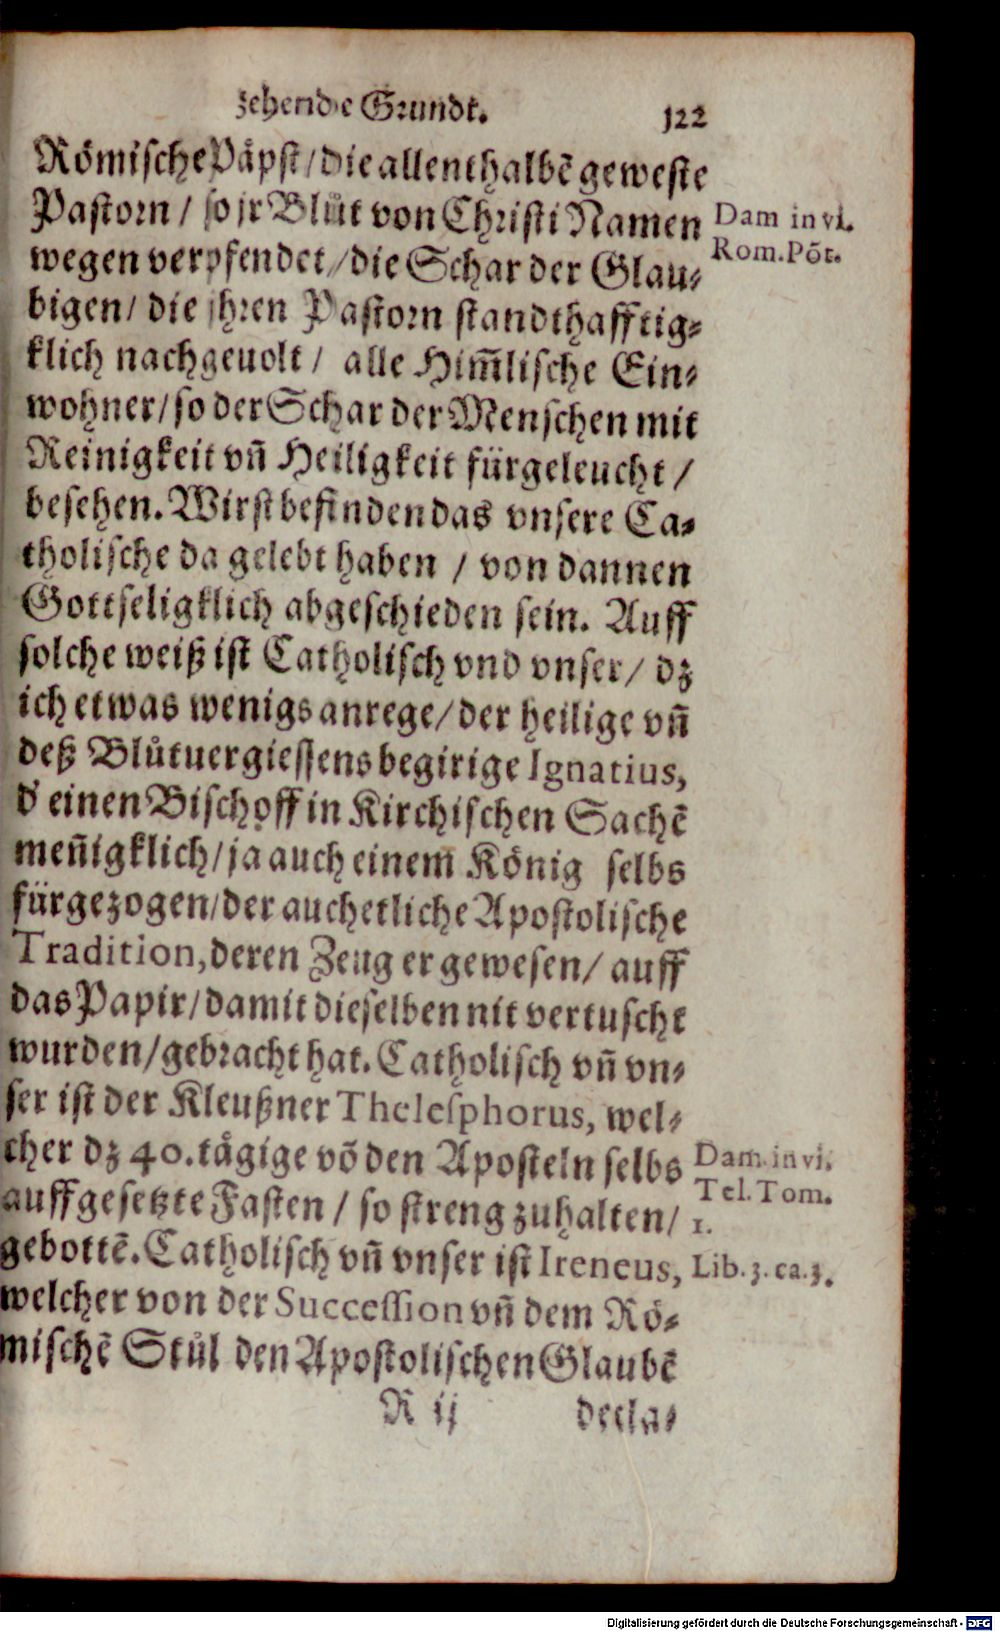 zehende Grundt.
122
Römische Päpst / die allenthalbẽ geweste
Pastorn / so jr Blůt von Christi Namen
Dam in vi.
wegen verpfendet / die Schar der Glau⸗
Rom. Põt.
bigen / die jhren Pastorn standthafftig⸗
klich nachgeuolt / alle Him̃lische Ein⸗
wohner / so der Schar der Menschen mit
Reinigkeit vñ Heiligkeit fürgeleucht /
besehen. Wirst befinden das vnsere Ca⸗
tholische da gelebt haben / von dannen
Gottseligklich abgeschieden sein. Auff
solche weiß ist Catholisch vnd vnser / dz
ich etwas wenigs anrege / der heilige vñ
deß Blůtuergiessens begirige Ignatius,
d' einen Bischoff in Kirchischen Sachẽ
meñigklich / ja auch einem König selbs
fürgezogen / der auch etliche Apostolische
Tradition, deren Zeug er gewesen / auff
das Papir / damit dieselben nit vertuscht
wurden / gebracht hat. Catholisch vñ vn⸗
ser ist der Kleußner Thelesphorus, wel⸗
cher dz 40. tägige võ den Aposteln selbs
Dam in vi.
auffgesetzte Fasten / so streng zuhalten /
Tel. Tom.
1.
gebottẽ. Catholisch vñ vnser ist Ireneus,
Lib. 3. ca. 3.
welcher von der Succession vñ dem Rö⸗
mischẽ Stůl den Apostolischen Glaubẽ
R ij
decla⸗
Digitalisierung gefördert durch die Deutsche Forschungsgemeinschaft - DFG